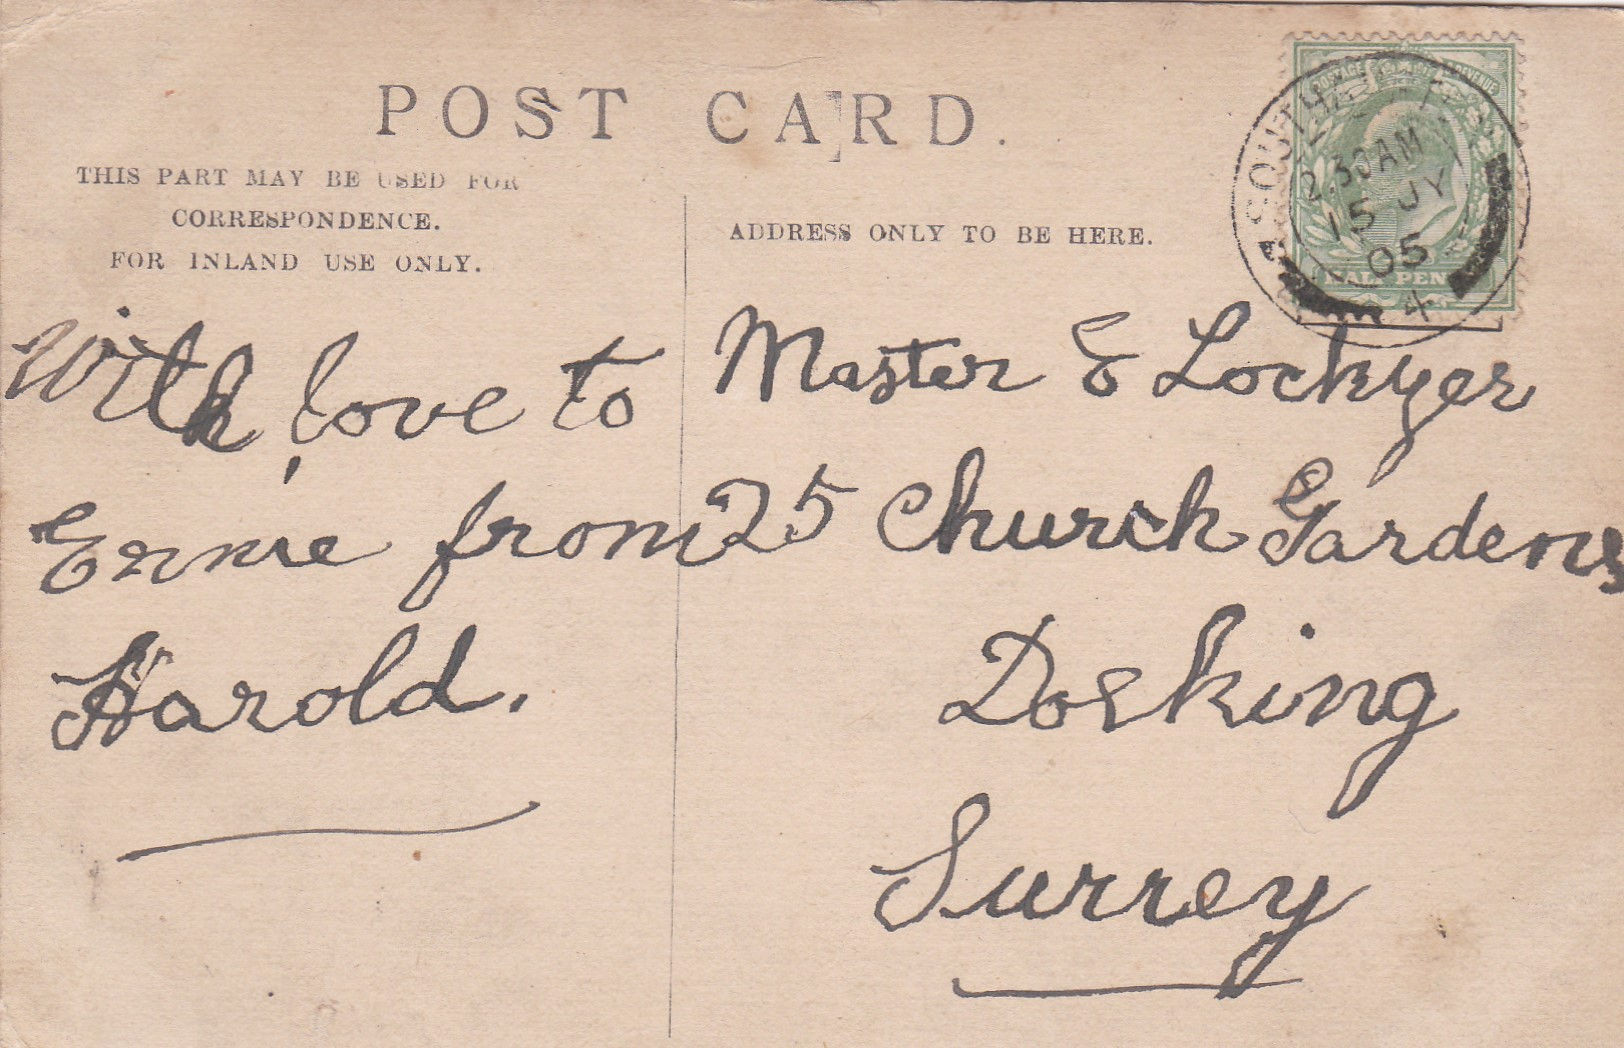 POST CARD.
THIS PART MAY BE USED FOR
CORRESPONDENCE.
FOR INLAND USE ONLY.
ADDRESS ONLY TO BE HERE.
2.30AM
15 JY
05
4
With love to
Ernie from
Harold.
Master E Lockyer
25 Church Gardens
Dorking
Surrey